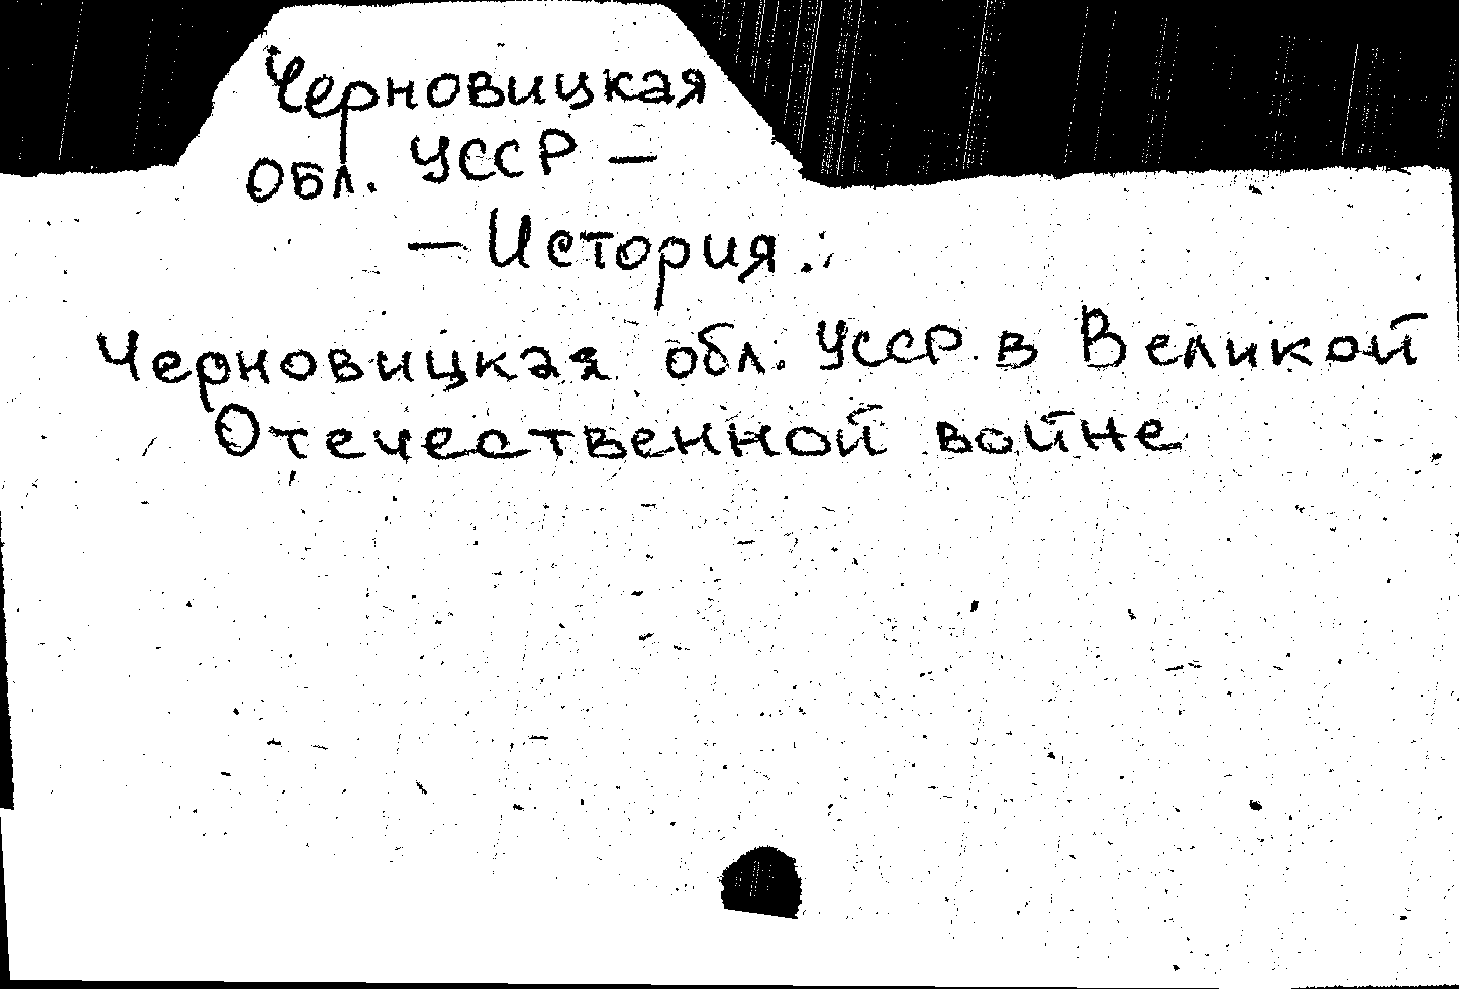 Черновицкая
обл. УССР —
— История.
Черновицкая обл. УССР в Великой
Отечественной войне